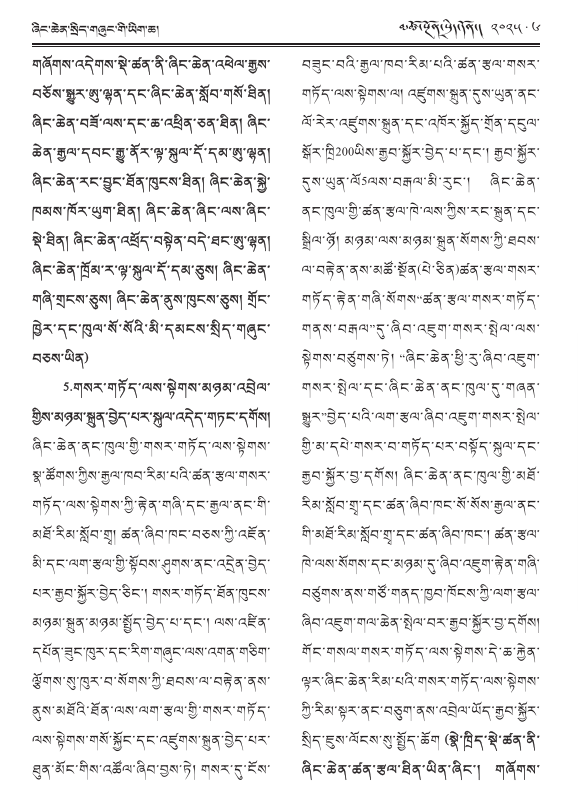 ཞིང་ཆེན་སྲིད་གཞུང་གི་ཡིག་ཆ།
༢༠༢༥ · ༧
གཞོགས་འདེགས་སྡེ་ཚན་ནི་ཞིང་ཆེན་འཕེལ་རྒྱས་
བཅོས་སྒྱུར་ཨུ་ལྷན་དང་ཞིང་ཆེན་སློབ་གསོ་ཐིན།
ཞིང་ཆེན་བཟོ་ལས་དང་ཆ་འཕྲིན་ཅན་ཐིན། ཞིང་
ཆེན་རྒྱལ་དབང་རྒྱུ་ནོར་ལྟ་སྐུལ་དོ་དམ་ཨུ་ལྷན།
ཞིང་ཆེན་རང་བྱུང་ཐོན་ཁུངས་ཐིན། ཞིང་ཆེན་སྐྱེ་
ཁམས་ཁོར་ཡུག་ཐིན། ཞིང་ཆེན་ཞིང་ལས་ཞིང་
སྡེ་ཐིན། ཞིང་ཆེན་འཕྲོད་བསྟེན་བདེ་ཐང་ཨུ་ལྷན།
ཞིང་ཆེན་ཁྲོམ་ར་ལྟ་སྐུལ་དོ་དམ་ཅུས། ཞིང་ཆེན་
གཞི་གྲངས་ཅུས། ཞིང་ཆེན་ནུས་ཁུངས་ཅུས། གྲོང་
ཁྱེར་དང་ཁུལ་སོ་སོའི་མི་དམངས་སྲིད་གཞུང་
བཅས་ཡིན)
5.གསར་གཏོད་ལས་སྟེགས་མཉམ་འབྲེལ་
གྱིས་མཉམ་སྐྲུན་བྱེད་པར་སྐུལ་འདེད་གཏང་དགོས།
ཞིང་ཆེན་ནང་ཁུལ་གྱི་གསར་གཏོད་ལས་སྟེགས་
སྣ་ཚོགས་ཀྱིས་རྒྱལ་ཁབ་རིམ་པའི་ཚན་རྩལ་གསར་
གཏོད་ལས་སྟེགས་ཀྱི་རྟེན་གཞི་དང་རྒྱལ་ནང་གི་
མཐོ་རིམ་སློབ་གྲྭ། ཚན་ཞིབ་ཁང་བཅས་ཀྱི་འཛོན་
མི་དང་ལག་རྩལ་གྱི་སྟོབས་ཤུགས་ནང་འདྲེན་བྱེད་
པར་རྒྱབ་སྐྱོར་བྱེད་ཅིང་། གསར་གཏོད་ཐོན་ཁུངས་
མཉམ་སྐྲུན་མཉམ་སྤྱོད་བྱེད་པ་དང་། ལས་འཛིན་
དཔོན་ཟུང་ཁུར་དང་རིག་གཞུང་ལས་འགན་གཅིག་
ལྕོགས་སུ་ཁུར་བ་སོགས་ཀྱི་ཐབས་ལ་བརྟེན་ནས་
ནུས་མཐོའི་ཐོན་ལས་ལག་རྩལ་གྱི་གསར་གཏོད་
ལས་སྟེགས་གསོ་སྐྱོང་དང་འཛུགས་སྐྲུན་བྱེད་པར་
ཐུན་མོང་གིས་འཚོལ་ཞིབ་བྱས་ཏེ། གསར་དུ་ངོས་
བཟུང་བའི་རྒྱལ་ཁབ་རིམ་པའི་ཚན་རྩལ་གསར་
གཏོད་ལས་སྟེགས་ལ། འཛུགས་སྐྲུན་དུས་ཡུན་ནང་
ལོ་རེར་འཛུགས་སྐྲུན་དང་འཁོར་སྐྱོད་གྲོན་དངུལ་
སྒོར་ཁྲི200ཡིས་རྒྱབ་སྐྱོར་བྱེད་པ་དང་། རྒྱབ་སྐྱོར་
དུས་ཡུན་ལོ5ལས་བརྒལ་མི་རུང་། ཞིང་ཆེན་
ནང་ཁུལ་གྱི་ཚན་རྩལ་ཁེ་ལས་ཀྱིས་རང་སྐྲུན་དང་
སྒྲིལ་ཉོ། མཉམ་ལས་མཉམ་སྐྲུན་སོགས་ཀྱི་ཐབས་
ལ་བརྟེན་ནས་མཚོ་སྔོན(པེ་ཅིན)ཚན་རྩལ་གསར་
གཏོད་རྟེན་གཞི་སོགས“ཚན་རྩལ་གསར་གཏོད་
གནས་བརྒལ”དུ་ཞིབ་འཇུག་གསར་སྤེལ་ལས་
སྟེགས་བཙུགས་ཏེ། “ཞིང་ཆེན་ཕྱི་རུ་ཞིབ་འཇུག་
གསར་སྤེལ་དང་ཞིང་ཆེན་ནང་ཁུལ་དུ་གཞན་
སྒྱུར”བྱེད་པའི་ལག་རྩལ་ཞིབ་འཇུག་གསར་སྤེལ་
གྱི་མ་དཔེ་གསར་བ་གཏོད་པར་བསྟོད་སྐུལ་དང་
རྒྱབ་སྐྱོར་བྱ་དགོས། ཞིང་ཆེན་ནང་ཁུལ་གྱི་མཐོ་
རིམ་སློབ་གྲྭ་དང་ཚན་ཞིབ་ཁང་སོ་སོས་རྒྱལ་ནང་
གི་མཐོ་རིམ་སློབ་གྲྭ་དང་ཚན་ཞིབ་ཁང་། ཚན་རྩལ་
ཁེ་ལས་སོགས་དང་མཉམ་དུ་ཞིབ་འཇུག་རྟེན་གཞི་
བཙུགས་ནས་གཙོ་གནད་ཁྱབ་ཁོངས་ཀྱི་ལག་རྩལ་
ཞིབ་འཇུག་གལ་ཆེན་སྤེལ་བར་རྒྱབ་སྐྱོར་བྱ་དགོས།
གོང་གསལ་གསར་གཏོད་ལས་སྟེགས་དེ་ཆ་རྐྱེན་
ལྟར་ཞིང་ཆེན་རིམ་པའི་གསར་གཏོད་ལས་སྟེགས་
ཀྱི་རིམ་སྟར་ནང་བཅུག་ནས་འབྲེལ་ཡོད་རྒྱབ་སྐྱོར་
སྲིད་ཇུས་ལོངས་སུ་སྤྱོད་ཆོག (སྣེ་ཁྲིད་སྡེ་ཚན་ནི་
ཞིང་ཆེན་ཚན་རྩལ་ཐིན་ཡིན་ཞིང་། གཞོགས་